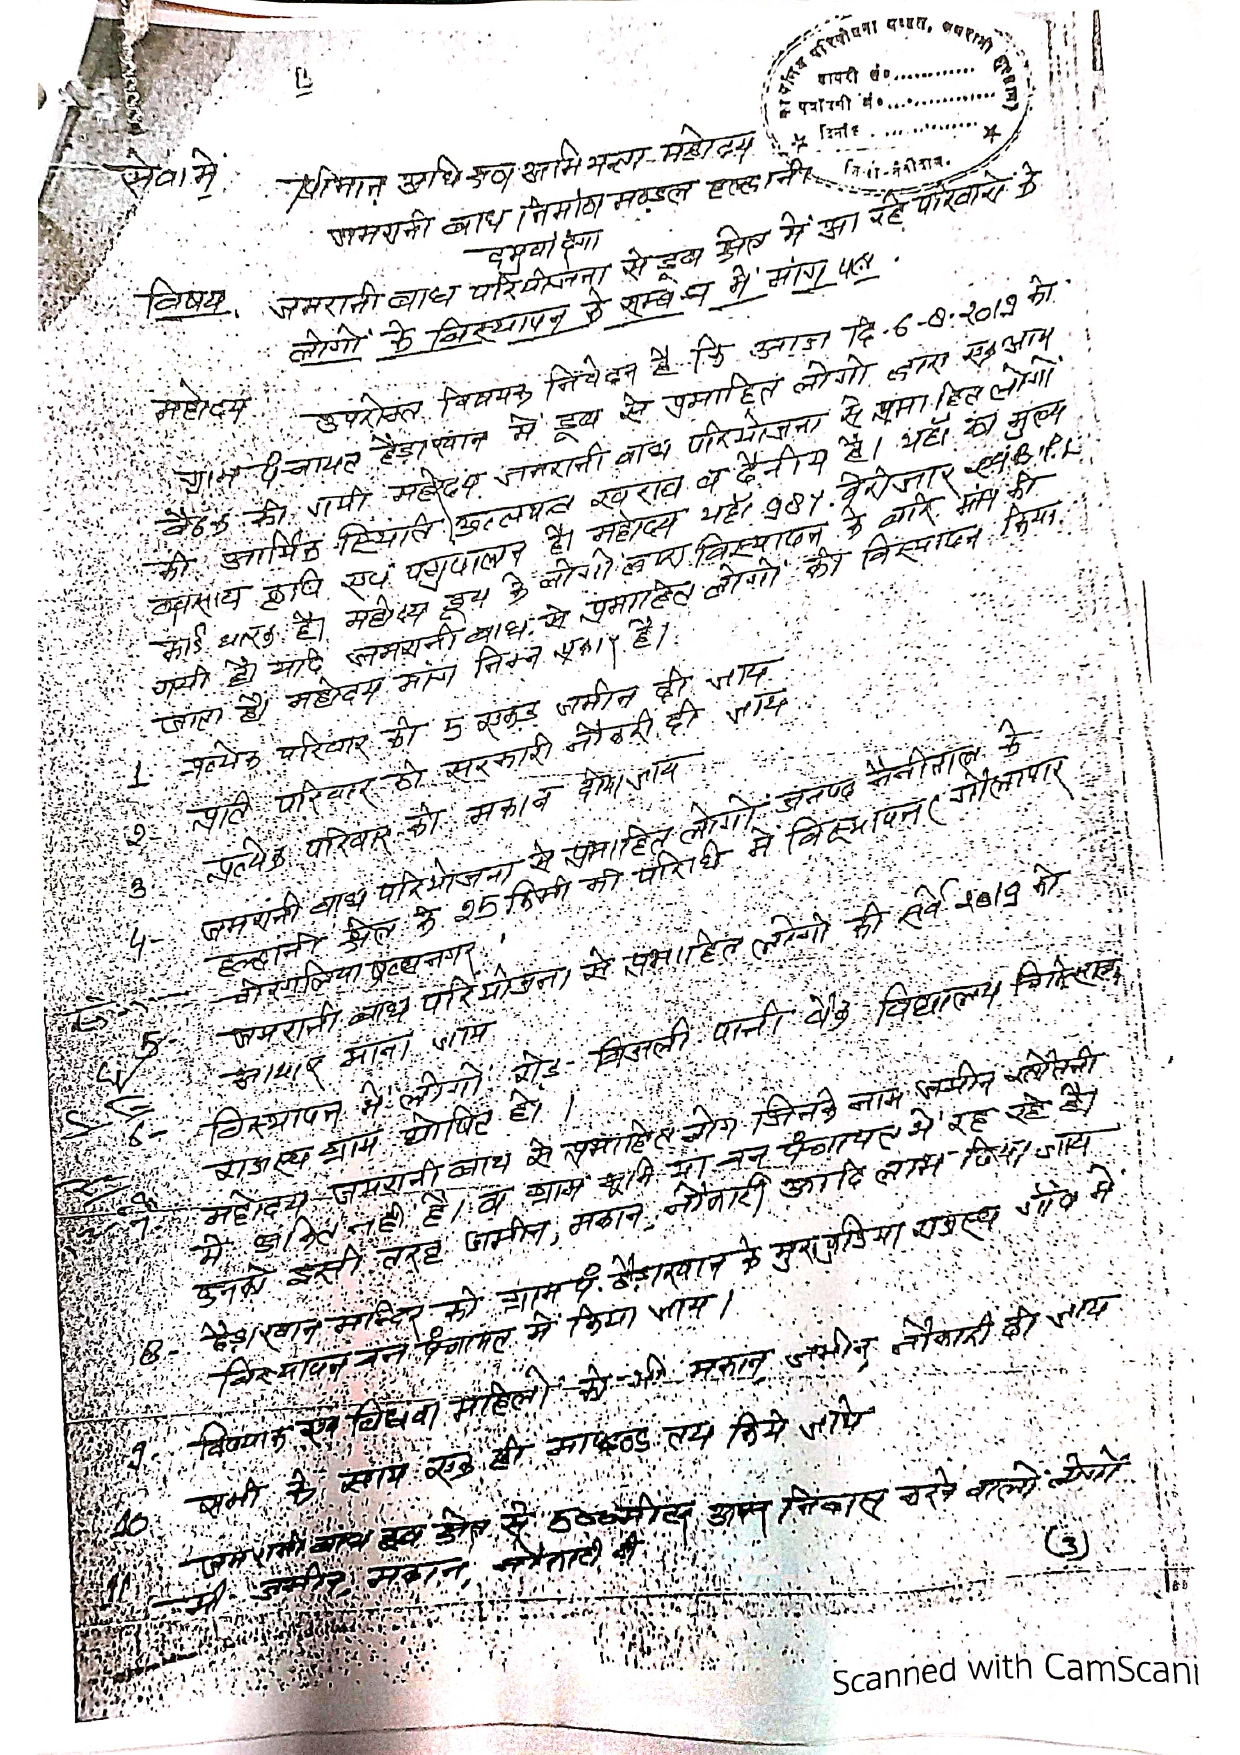 सेवा में,
श्रीमान् अधिक्षण अभियन्ता महोदय
जमरानी बाध निर्माण मण्डल हल्द्वानी
दमुवाढुंगा
विषय. जमरानी बाध परियोजना से डूब क्षेत्र में आ रहे परिवारो के
लोगों के विस्थापन के सम्बन्ध में मांग पत्र .
महोदय उपरोक्त विषयक निवेदन है कि आज दि. 6-8-2019 को
ग्राम पंचायत हैड़ाखान में डूब से प्रभाहित लोगो द्वारा एक आम
बैठक की गयी महोदय जमरानी बाध परियोजना से प्रभाहित लोगों
की आर्थिक स्थिति अत्यन्त खराब व दैनीय है। यहाँ का मुख्य
व्यवसाय कृषि एवं पशुपालन है। महोदय यहाँ 98% बेरोजार एवं B.P.L
कार्ड धारक है। महोदय डूब के लोगो द्वारा विस्थापन के बारे मांग की
गयी है। यदि जमरानी बाध से प्रभाहित लोगों को विस्थापन किया
जाता है। महोदय मांग निम्न प्रकार है।
1 प्रत्येक परिवार को 5 एकड़ जमीन दी जाय
2- प्रति परिवार को सरकारी नौकरी दी जाय
3 प्रत्येक परिवार को मकान दीया जाय
4- जमरानी बाध परियोजना से प्रभाहित लोगों जनपद नैनीताल के
हल्द्वानी क्षेत्र के 25 किमी की परिधि में विस्थापन (गौलापार
चोरगलिया
5- जमरानी बाध परियोजना से प्रभाहित लोगो की सर्वे 2019 को
आधार माना जाय
6- विस्थापन में लोगो रोड- बिजली पानी बैंक विद्यालय
राजस्व ग्राम घोषित हो।
7- महोदय जमरानी बाध से प्रभाहित लोग जिनके नाम जमीन
में अंकित नही है। व ग्राम भूमि या वन पंचायत में रह रहे है।
उनको इसी तरह जमीन, मकान, नौकारी आदि लाभ दिया जाय
8- हैड़ाखान मन्दिर को ग्राम पं. हैड़ाखान के मुरकुड़िया राजस्व गाँव में
विस्थापन वन पंचायत में किया जाय।
9- विकलाक एवं विधवा महिलो को भी मकान, जमीन, नौकारी दी जाय
10 सभी के साथ एक ही मापदण्ड तय किये जाये
11 जमरानी बाध डूब क्षेत्र से 500 मीटर आम निकास करने वालो लोगो
भी जमीन, मकान, नौकारी दी
(3)
Scanned with CamScani